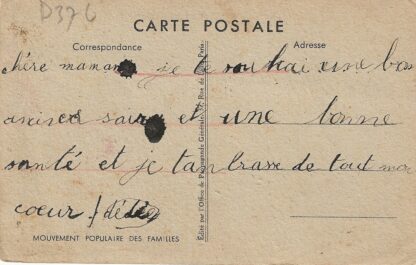 D376
CARTE POSTALE
Correspondance
Adresse
chère maman je te souhai une bon
et une bonne
santé et je tanbrasse de tout mon
coeur
Edité par l'Office de Propagande Générale, Rue de Paris.
MOUVEMENT POPULAIRE DES FAMILLES